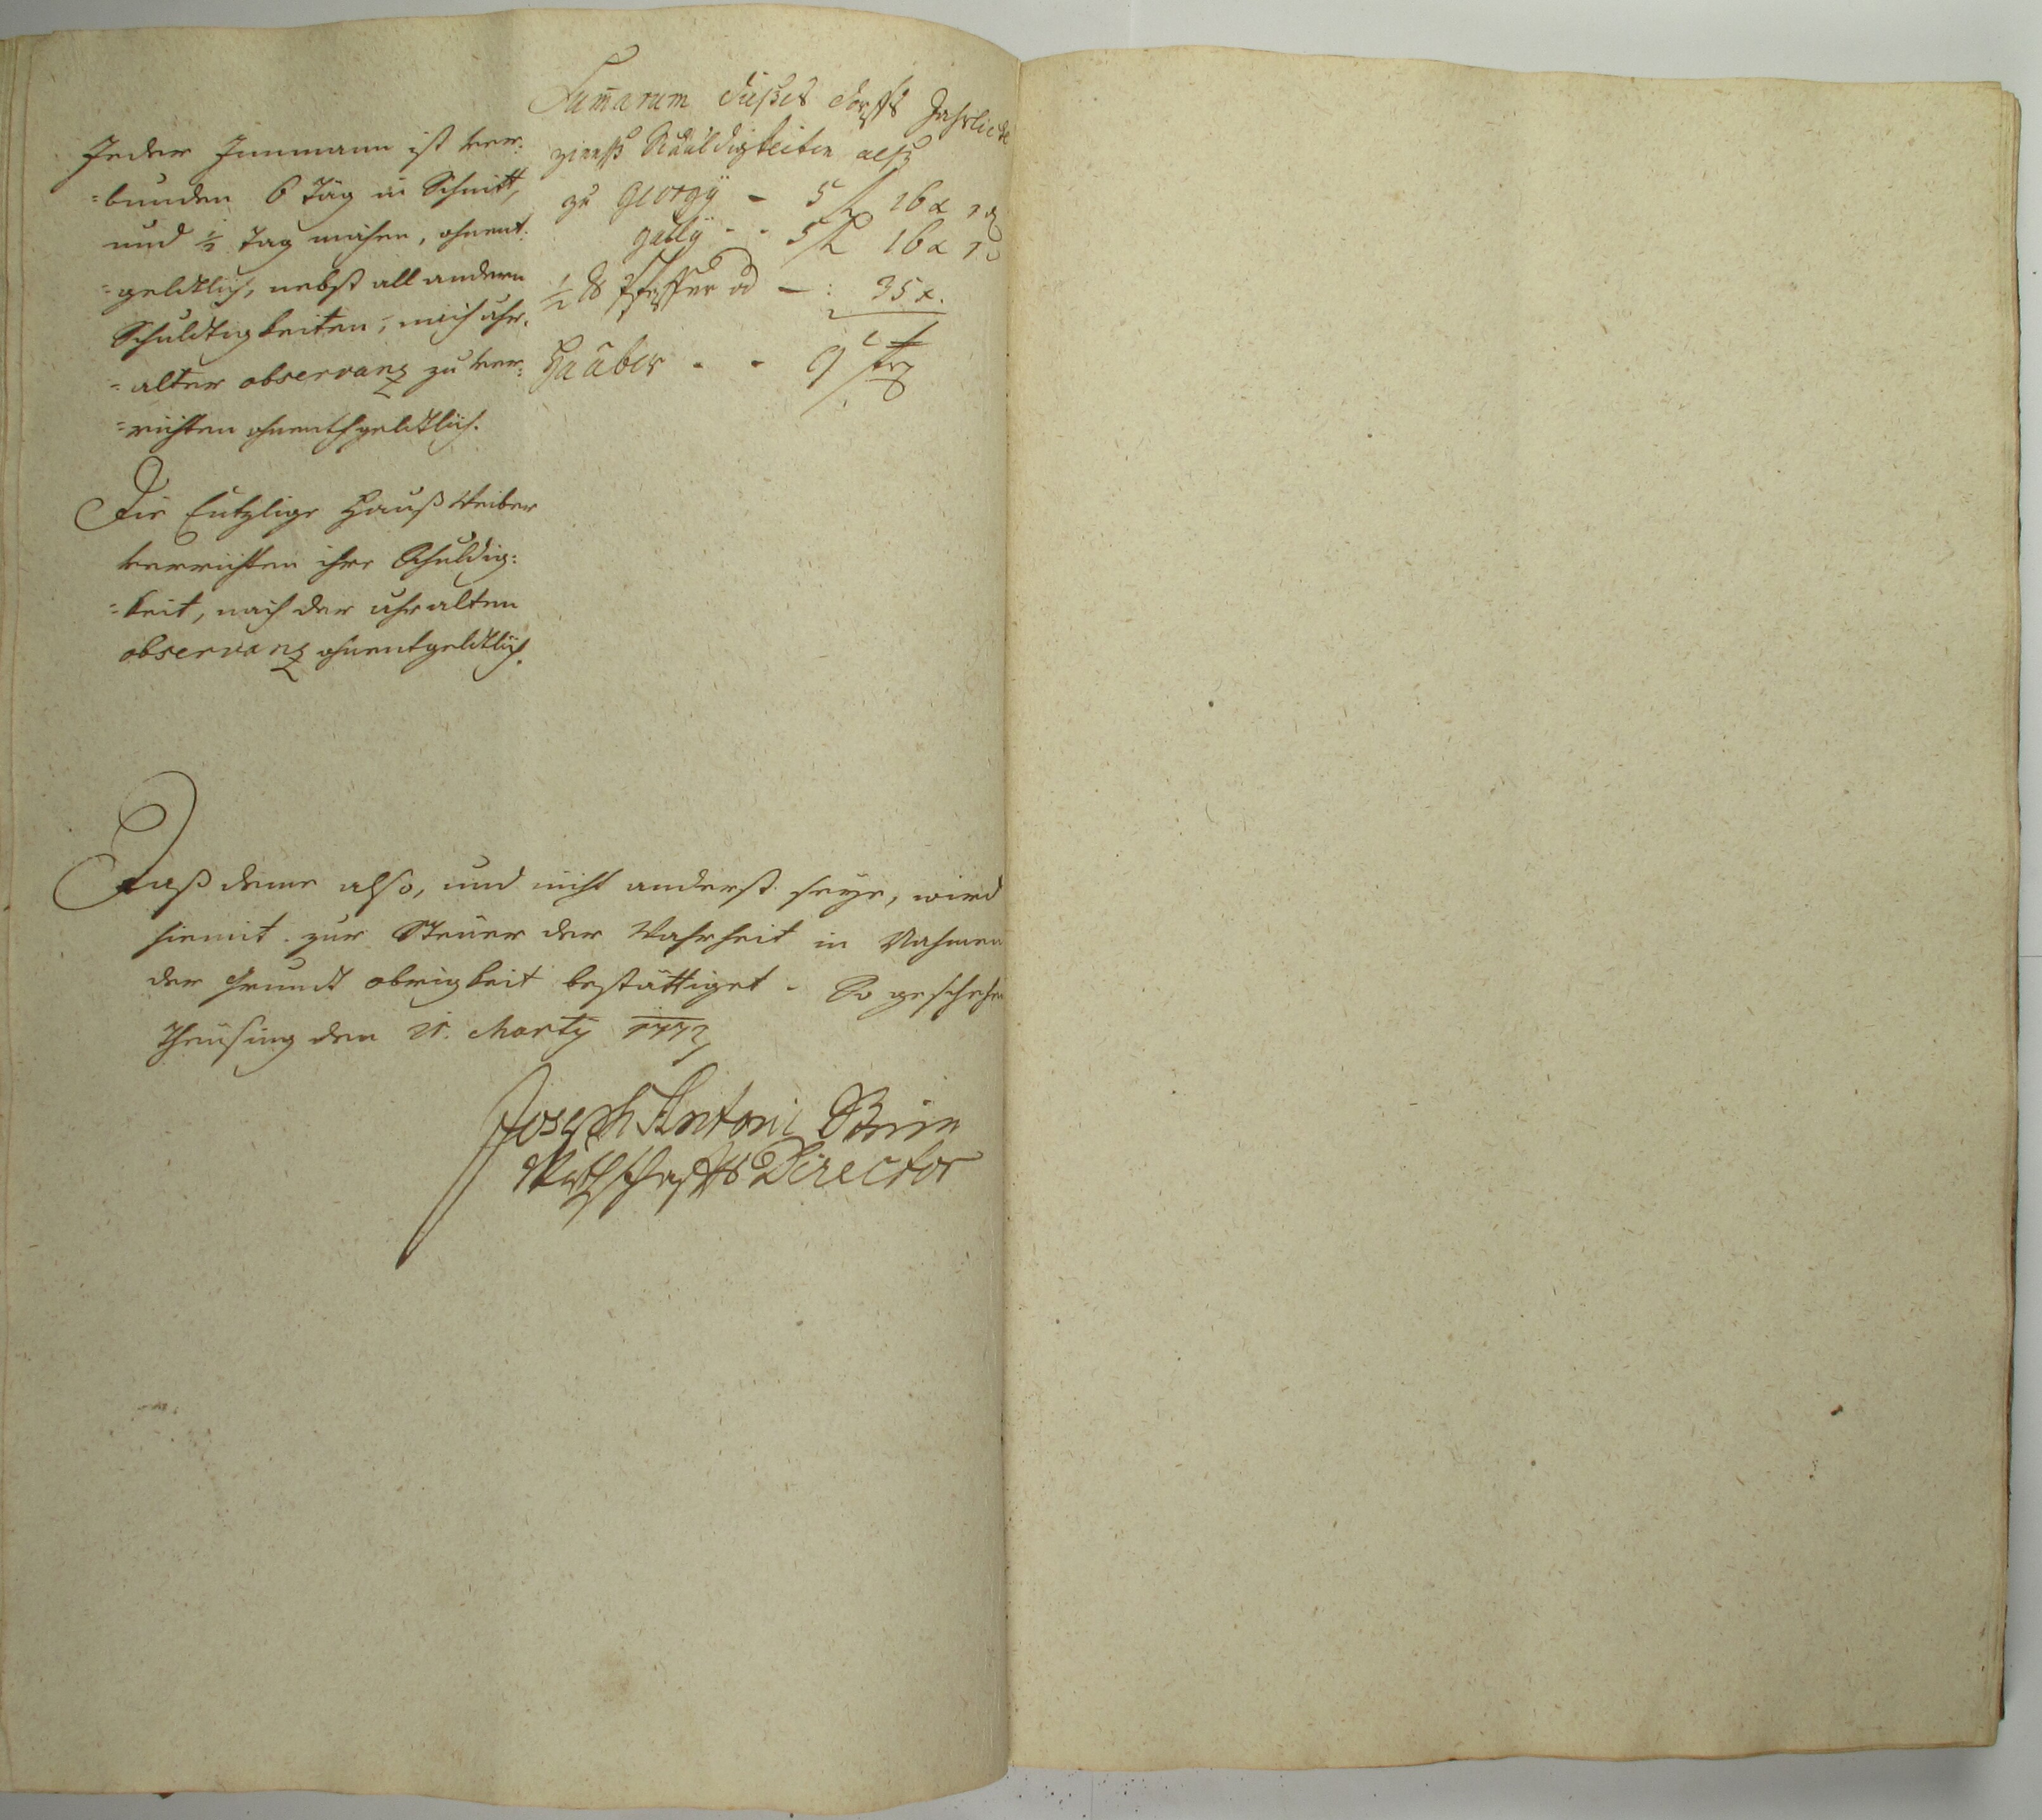 Jeder Innmann ist ver:
=bunden 6 Täg in Schnitt,
und ½ Tag mähen, ohnent:
=geldtlich, nebst all andern
Schuldtigkeiten, nach uhr:
=alter observanz zu ver:
=richten ohnentgeldtlich.
Die Eutzlige Hauß Weiber
verrichten ihre Schuldig:
=keit, nach der uhralten
observanz ohnentgeldtlich.
Sum̅arum dießes dorffs Jahrliche
zinnß Schuldigkeiten alß
zu Georgÿ - 5 f 16 x 1 d
gallÿ - - 5 f 16 x 1
½ ℔ Pfeffer od - : 35 x.
Haaber - - 9 str
Daß deme also, und nicht anderst seye, wird
hiemit zur Steüer der Wahrheit in Nahmen
der Grundt obrigkeit bestättiget. So geschehen
Theüsing den 21. Marty 1773
Joseph Antoni
Wirthschaffts Director